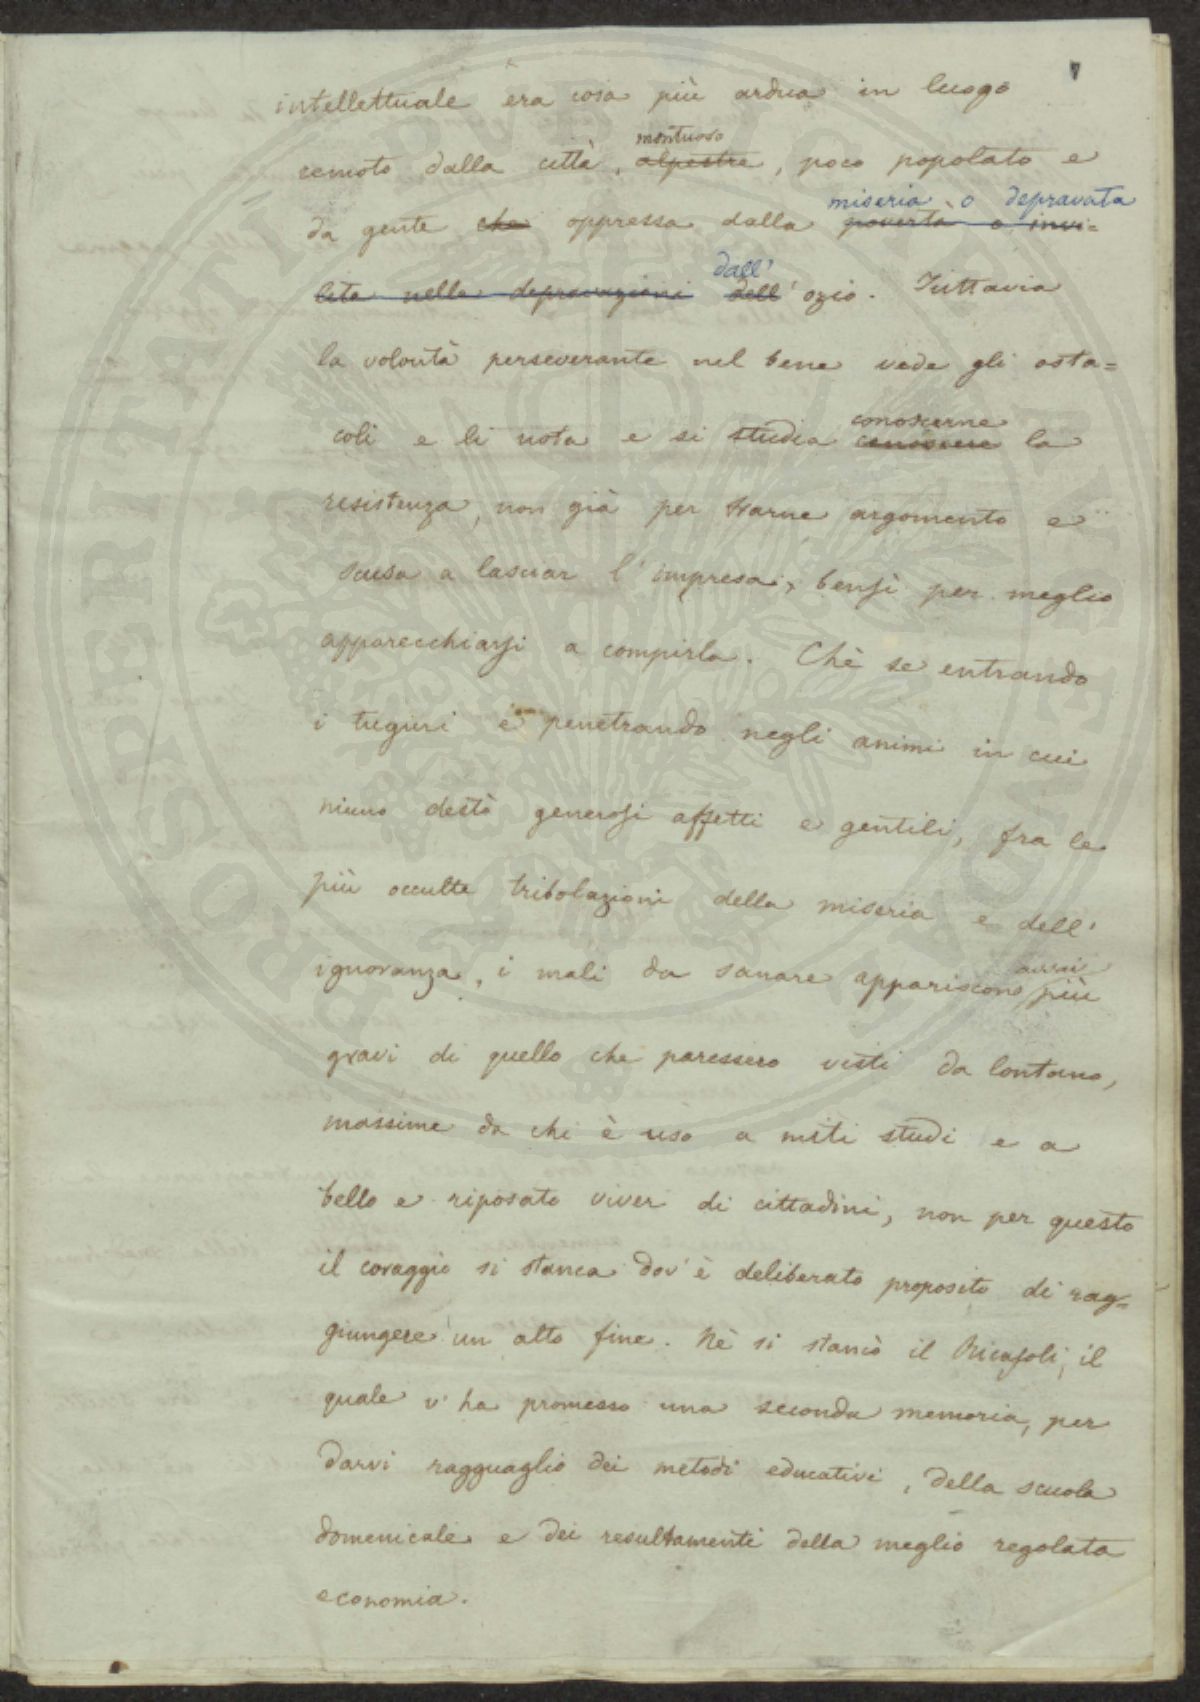 7
intellettuale era cosa più ardua in luogo
montuoso
remoto dalla città, alpestre, poco popolato e
miseria o depravata
da gente che oppressa dalla povertà o invi=
dall'
lita nelle depravazioni dell' ozio. Tuttavia
la volontà perseverante nel bene vede gli osta=
conoscerne
coli e li nota e si studia conoscere la
resistenza, non già per trarne argomento e
scusa a lasciar l'impresa, bensì per meglio
apparecchiarsi a compirla. Chè se entrando
i tuguri e penetrando negli animi in cui
niuno destò generosi affetti e gentili, fra le
più occulte tribolazioni della miseria e dell'
assai
ignoranza, i mali da sanare appariscono più
gravi di quello che paressero visti da lontano,
massime da chi è uso a miti studi e a
bello e riposato viver di cittadini, non per questo
il coraggio si stanca dov'è deliberato proposito di rag=
giungere un alto fine. Nè si stancò il Ricasoli, il
quale v'ha promesso una seconda memoria, per
darvi ragguaglio dei metodi educativi, della scuola
domenicale e dei resultamenti della meglio regolata
economia.
PROSPERITATI PUBLICAE AUGENDAE